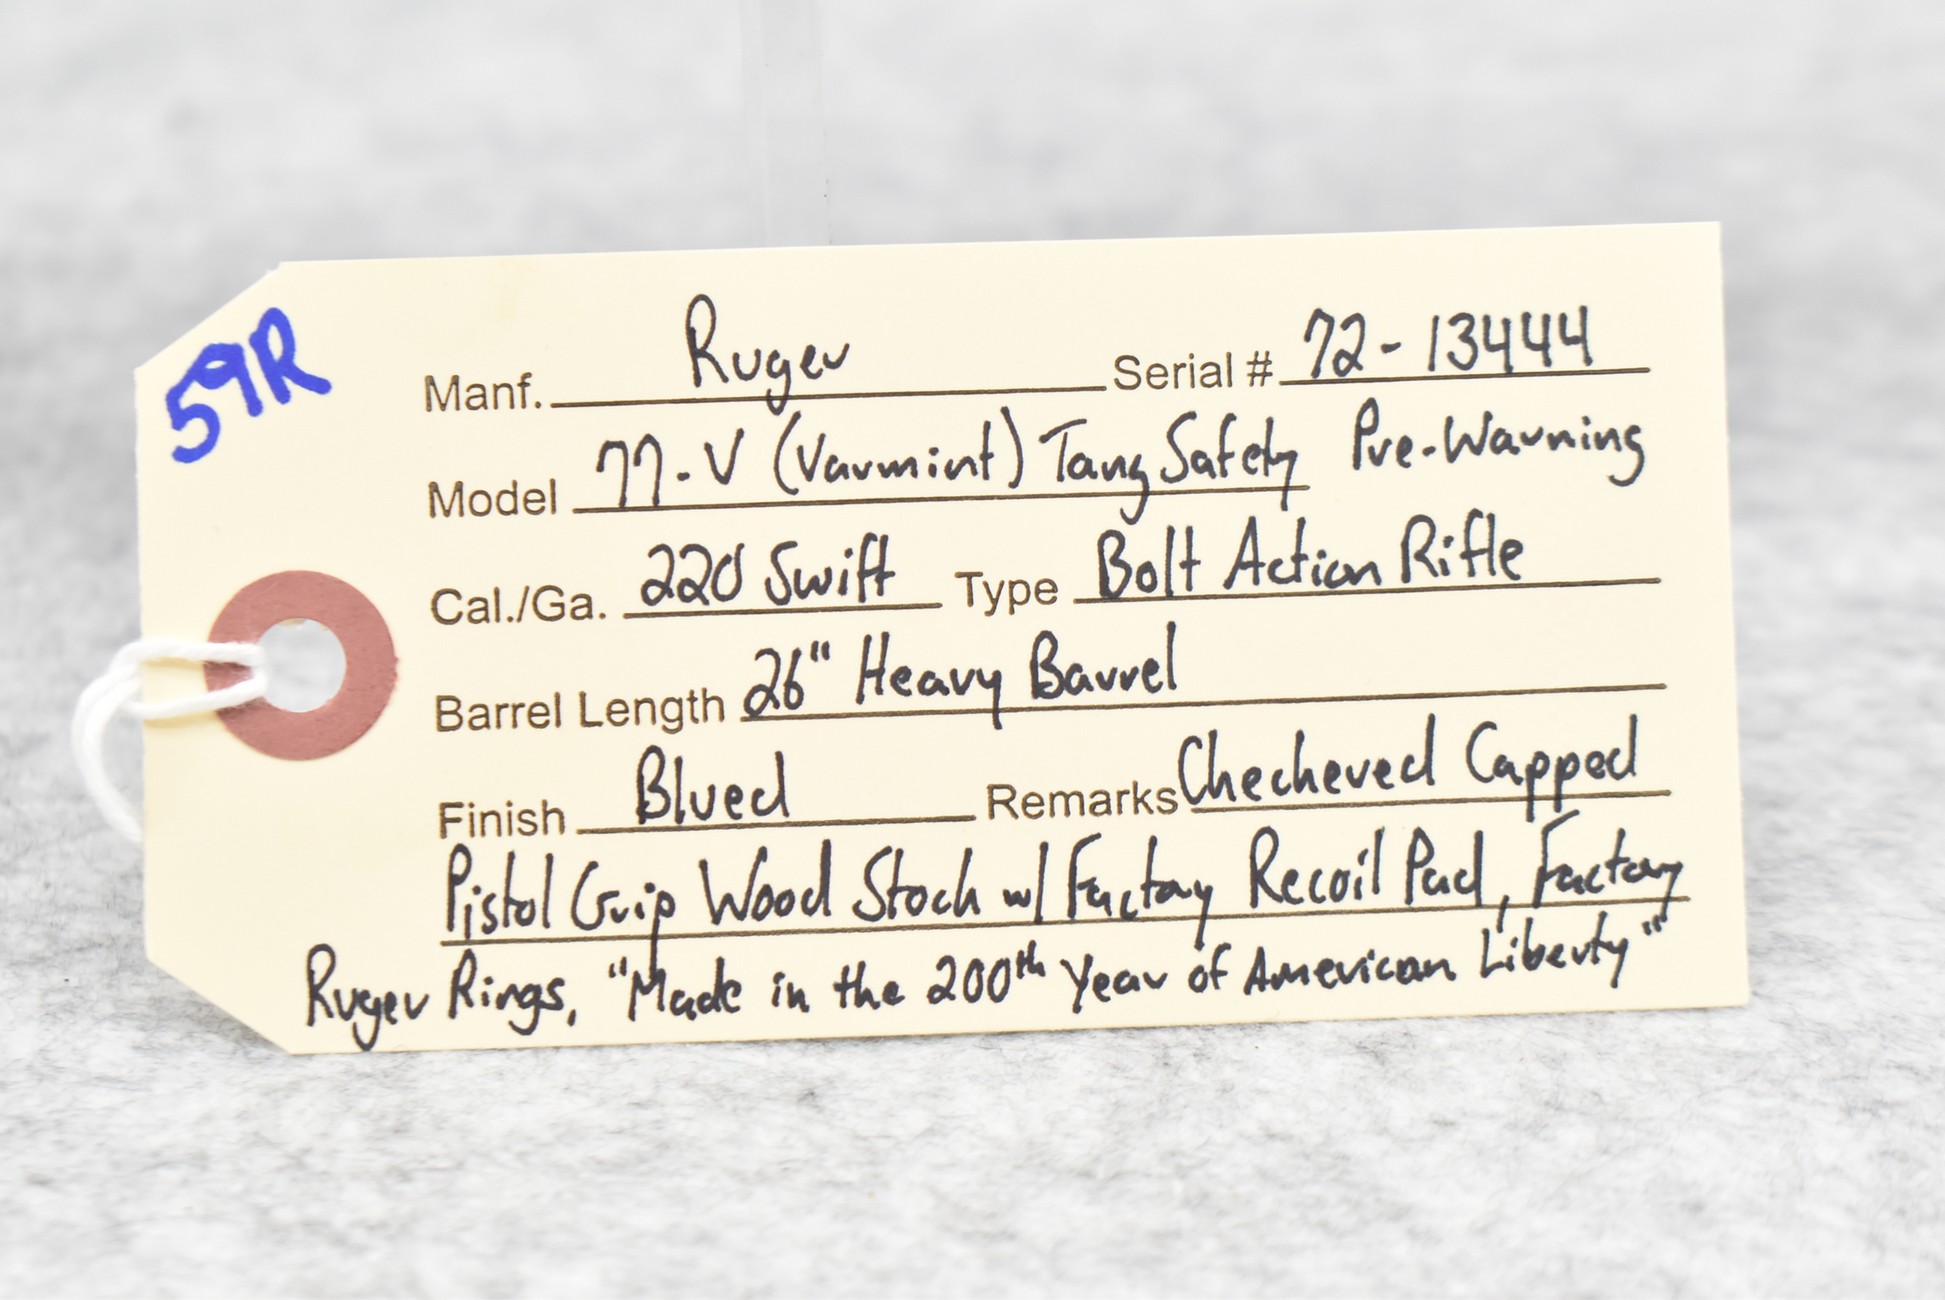 59R
Manf. Ruger Serial # 72-13444
Model 77-V (Varmint) Tang Safety Pre-Warning
Cal./Ga. 220 Swift Type Bolt Action Rifle
Barrel Length 26" Heavy Barrel
Finish Blued Remarks Checkered Capped
Pistol Grip Wood Stock w/ Factory Recoil Pad, Factory
Ruger Rings, "Made in the 200th Year of American Liberty"